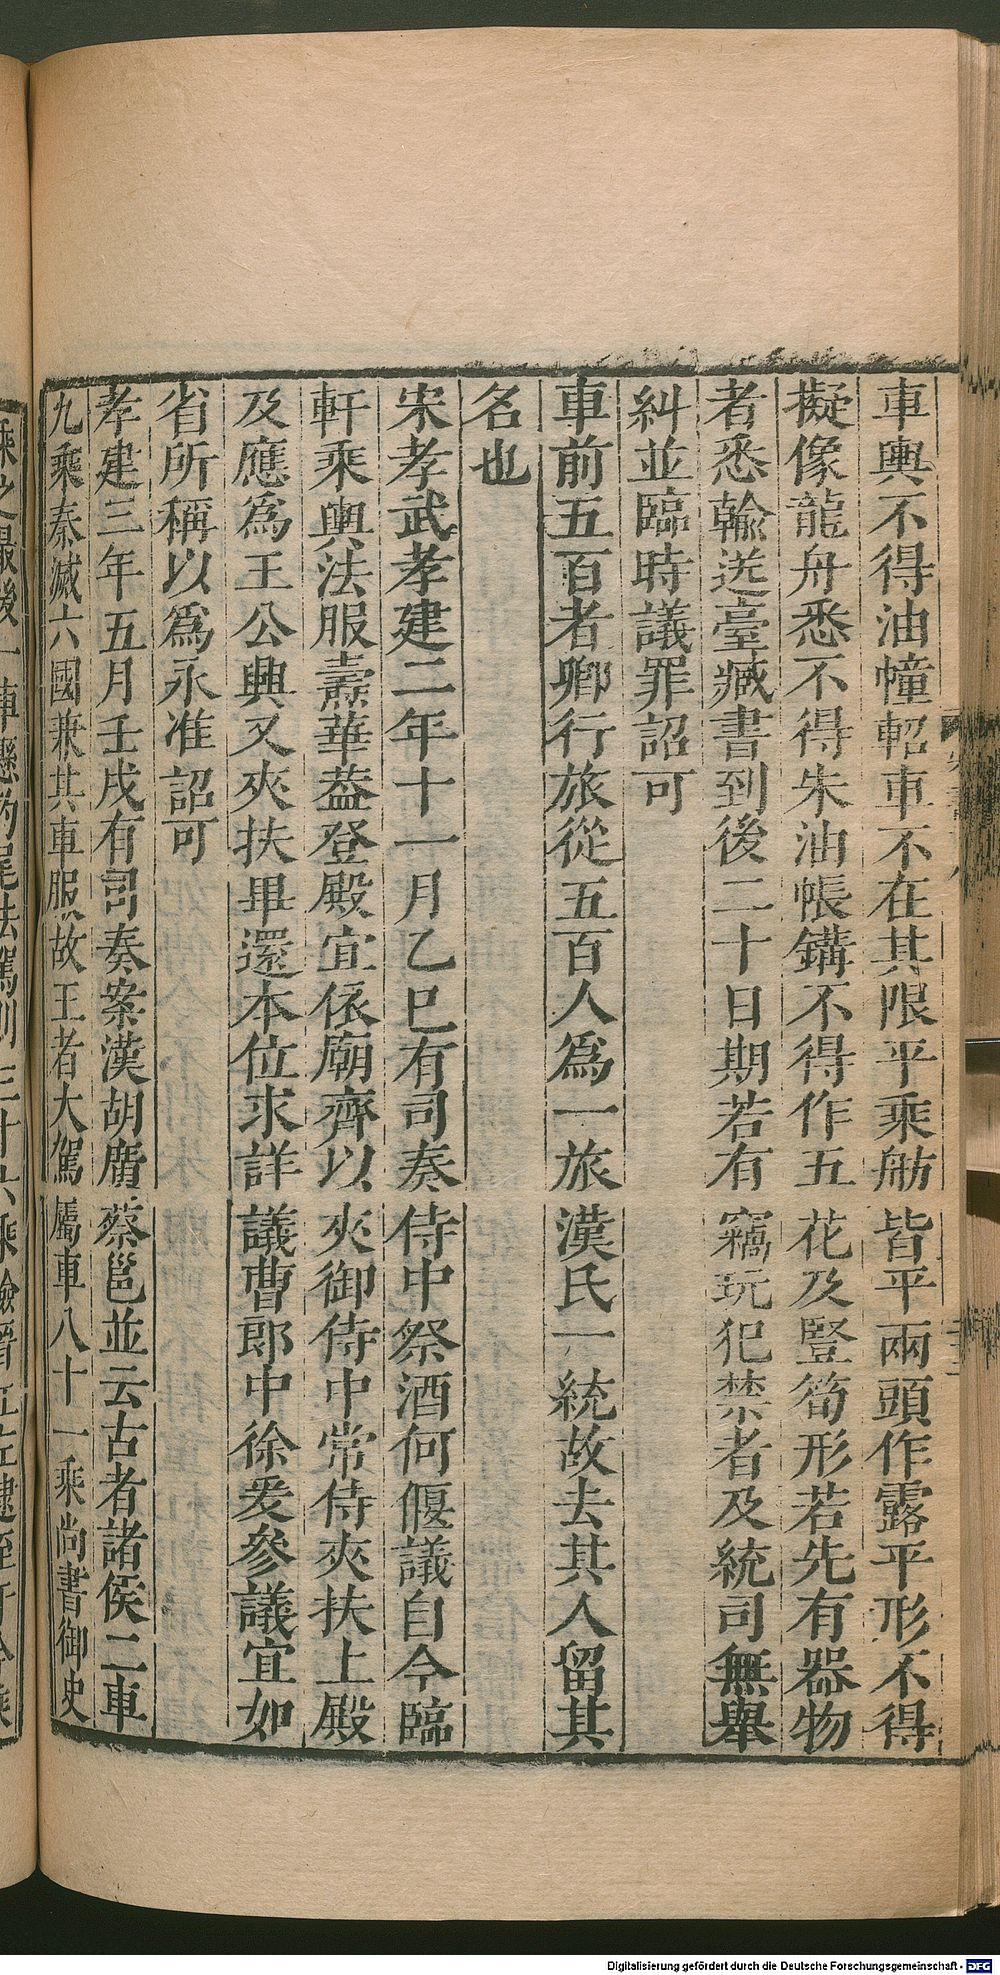 車輿不得油幢軺車不在其限平乘舫皆平兩頭作露平形不得
擬像龍舟悉不得朱油帳鐫不得作五花及豎筍形若先有器物
者悉輸送臺臧書到後二十日期若有竊玩犯禁者及統司無舉
糾並臨時議罪詔可
車前五百者卿行旅從五百人爲一旅漢氏一統故去其人留其
名也
宋孝武孝建二年十一月乙巳有司奏侍中祭酒何偃議自今臨
軒乘輿法服燾華葢登殿宜依廟齊以夾御侍中常侍夾扶上殿
及應爲王公興又夾扶畢還本位求詳議曹郎中徐爰參議宜如
省所稱以爲永准詔可
孝建三年五月壬戌有司奏案漢胡廣蔡邕並云古者諸侯二車
九乘秦滅六國兼其車服故王者大駕屬車八十一乘尚書御史
乘之最後一車懸豹尾法駕則三十六乘檢晉江左逮至于今乘
Digitalisierung gefördert durch die Deutsche Forschungsgemeinschaft - DFG